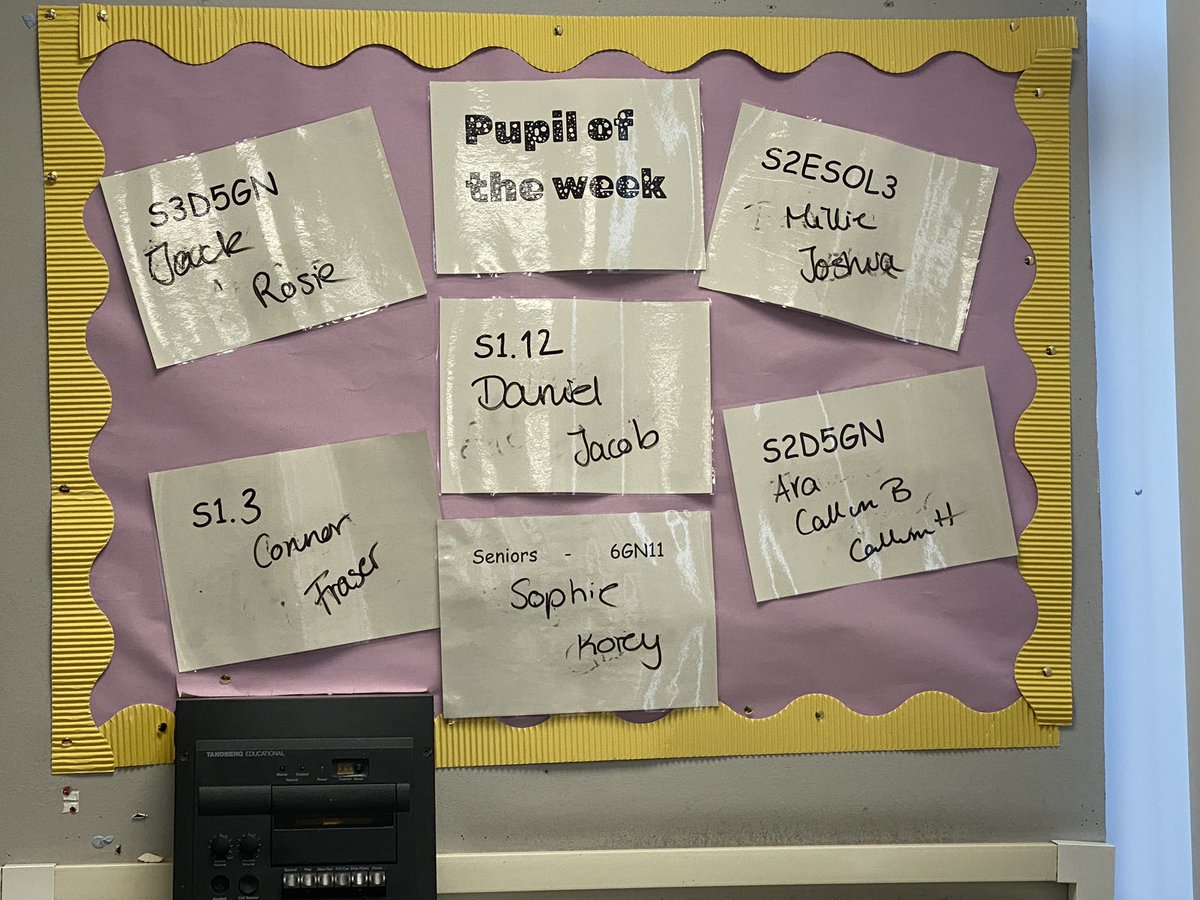 Pupil of
the week
S3D5GN
Jack
Rosie
S2ESOL3
Millie
Joshua
S1.12
Daniel
Jacob
S1.3
Connor
Fraser
Seniors - 6GN11
Sophie
Korey
S2D5GN
Ava
Callum B
Callum H
TANDBERG EDUCATIONAL